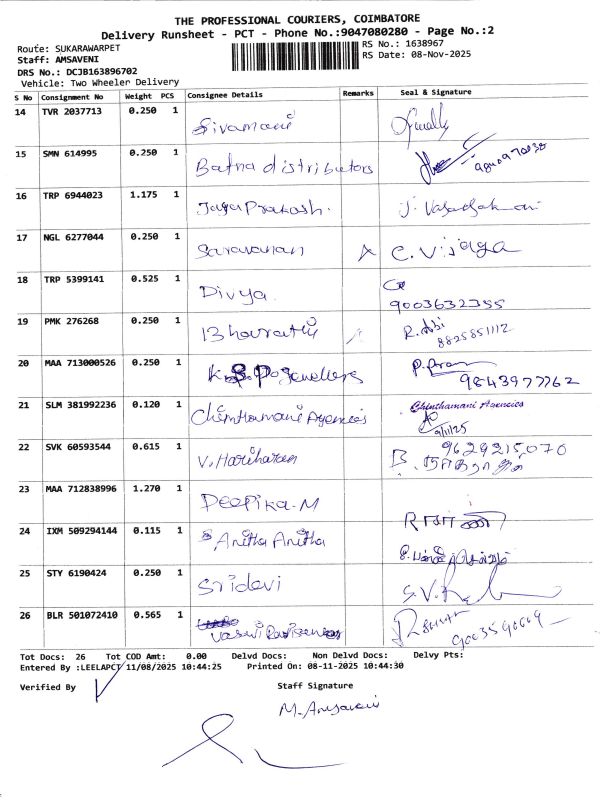 THE PROFESSIONAL COURIERS, COIMBATORE
Delivery Runsheet - PCT - Phone No.:9047080280 - Page No.:2
Route: SUKARAWARPET
RS No.: 1638967
Staff: AMSAVENI
RS Date: 08-Nov-2025
DRS No.: DCJB163896702
Vehicle: Two Wheeler Delivery
S No Consignment No Weight PCS Consignee Details Remarks Seal & Signature
14 TVR 2037713 0.250 1 Sivamani
15 SMN 614995 0.250 1 Batna distributors
16 TRP 6944023 1.175 1 JayaPrakash.
17 NGL 6277044 0.250 1 Saravanan C. Vijaya
18 TRP 5399141 0.525 1 Divya
9003632355
19 PMK 276268 0.250 1 Bharathi R. Abi
8825851112
20 MAA 713000526 0.250 1 Jewellers
9843977762
21 SLM 381992236 0.120 1 Chinthamani Agencies Chinthamani Agencies
9/11/25
22 SVK 60593544 0.615 1 V. Hariharan 9629215070
23 MAA 712838996 1.270 1 Deepika-M
24 IXM 509294144 0.115 1 Anitha Anitha
25 STY 6190424 0.250 1 Sridevi
26 BLR 501072410 0.565 1 Vasavi
Tot Docs: 26 Tot COD Amt: 0.00 Delvd Docs: Non Delvd Docs: Delvy Pts:
Entered By :LEELAPCT 11/08/2025 10:44:25 Printed On: 08-11-2025 10:44:30
Verified By Staff Signature